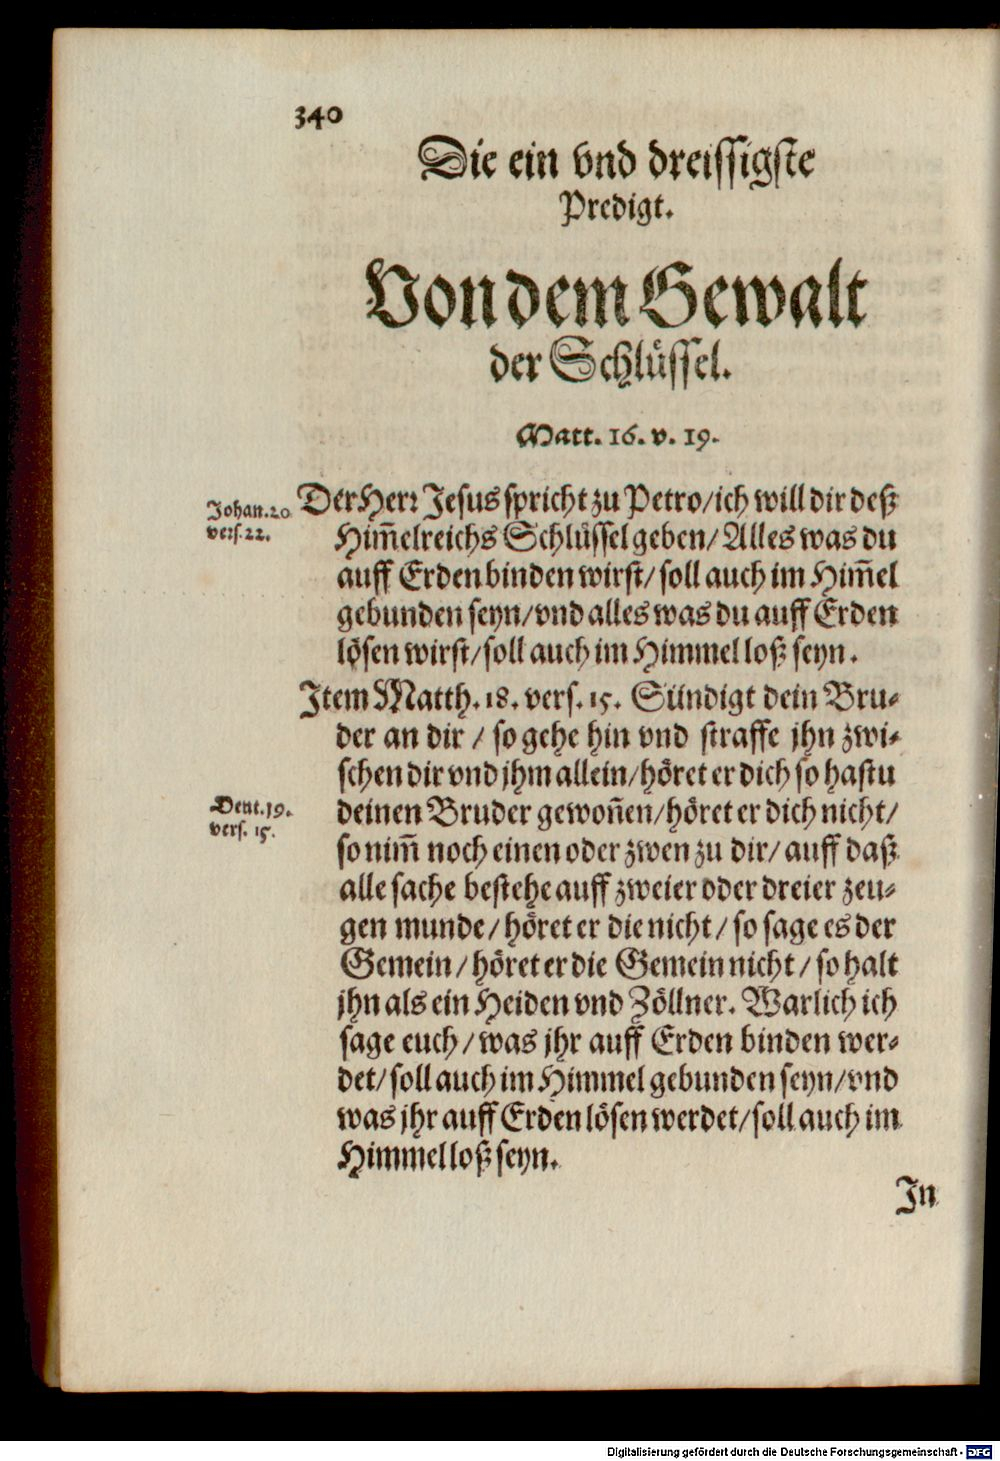 340
Die ein vnd dreissigste
Predigt.
Von dem Gewalt
der Schlüssel.
Matt. 16. v. 19.
Johan. 20
vers. 22.
Der Herr Jesus spricht zu Petro/ ich will dir deß
Him̃elreichs Schlüssel geben/ Alles was du
auff Erden binden wirst/ soll auch im Him̃el
gebunden seyn/ vnd alles was du auff Erden
lösen wirst/ soll auch im Himmel loß seyn.
Item Matth. 18. vers. 15. Sündigt dein Bru-
der an dir / so gehe hin vnd straffe jhn zwi-
schen dir vnd jhm allein/ höret er dich so hastu
Deut. 19.
vers. 15.
deinen Bruder gewoñen/ höret er dich nicht/
so nim̃ noch einen oder zwen zu dir/ auff daß
alle sache bestehe auff zweier oder dreier zeu-
gen munde/ höret er die nicht/ so sage es der
Gemein/ höret er die Gemein nicht/ so halt
jhn als ein Heiden vnd Zöllner. Warlich ich
sage euch/ was jhr auff Erden binden wer-
det/ soll auch im Himmel gebunden seyn/ vnd
was jhr auff Erden lösen werdet/ soll auch im
Himmel loß seyn.
In
Digitalisierung gefördert durch die Deutsche Forschungsgemeinschaft - DFG